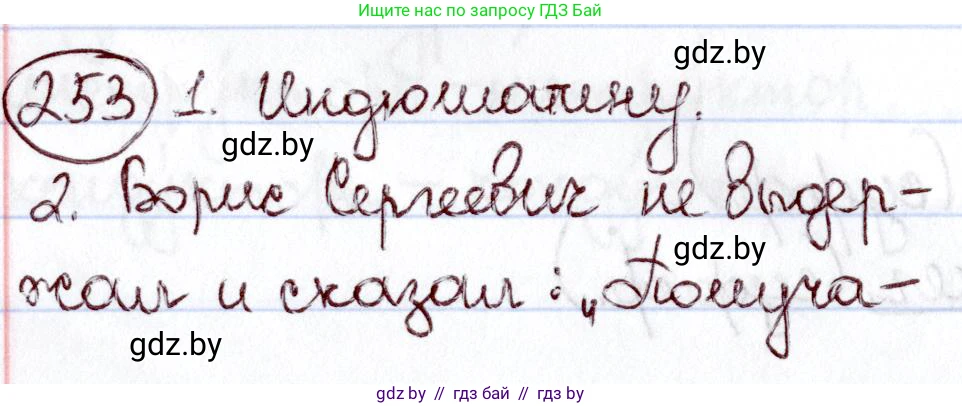 Ищите нас по запросу ГДЗ Бай
gdz.by
253 1. Индюшатину.
gdz.by
2. Борис Сергеевич не выдер-
gdz.by
жал и сказал: „Получа-
gdz.by
gdz.by // гдз бай // гдз by